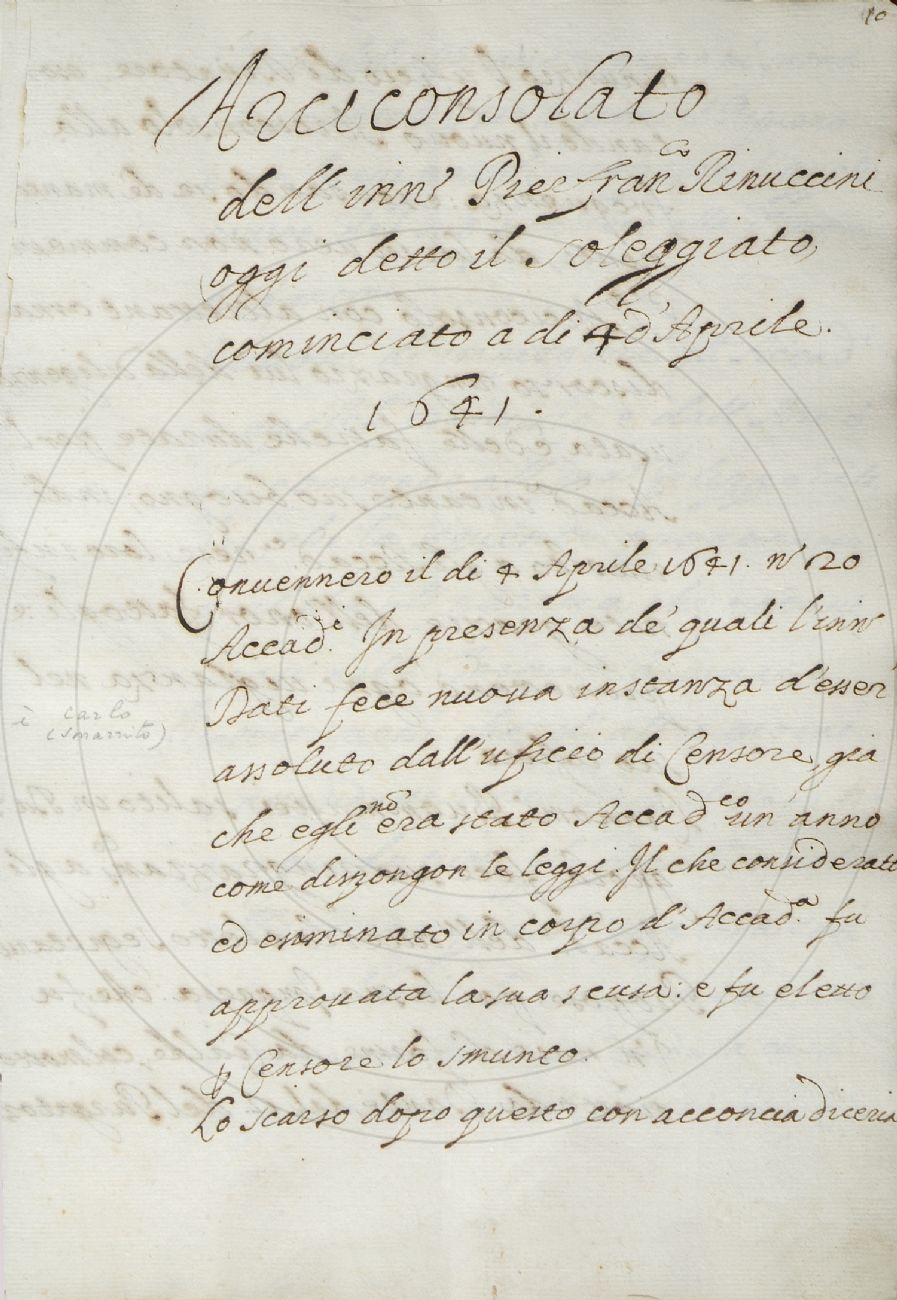 10
Arciconsolato
dell' inn.° Pier Fran.co Rinuccini
oggi detto il Soleggiato,
cominciato a di 4 d'Aprile.
1641.
Conuennero il di 4 Aprile 1641. n° 20
Accad.i In presenza de' quali l'inn°
Dati fece nuoua instanza d'esser
è Carlo
(Smarrito)
assoluto dall'uficio di Censore, gia
che egli no era stato Accad.co un' anno
come dispongon le leggi. Il che considerato
ed esaminato in corpo d'Accad.a fu
approuata la sua scusa: e fu eletto
p Censore lo Smunto.
Lo Scarso dopo questo con acconcia diceria